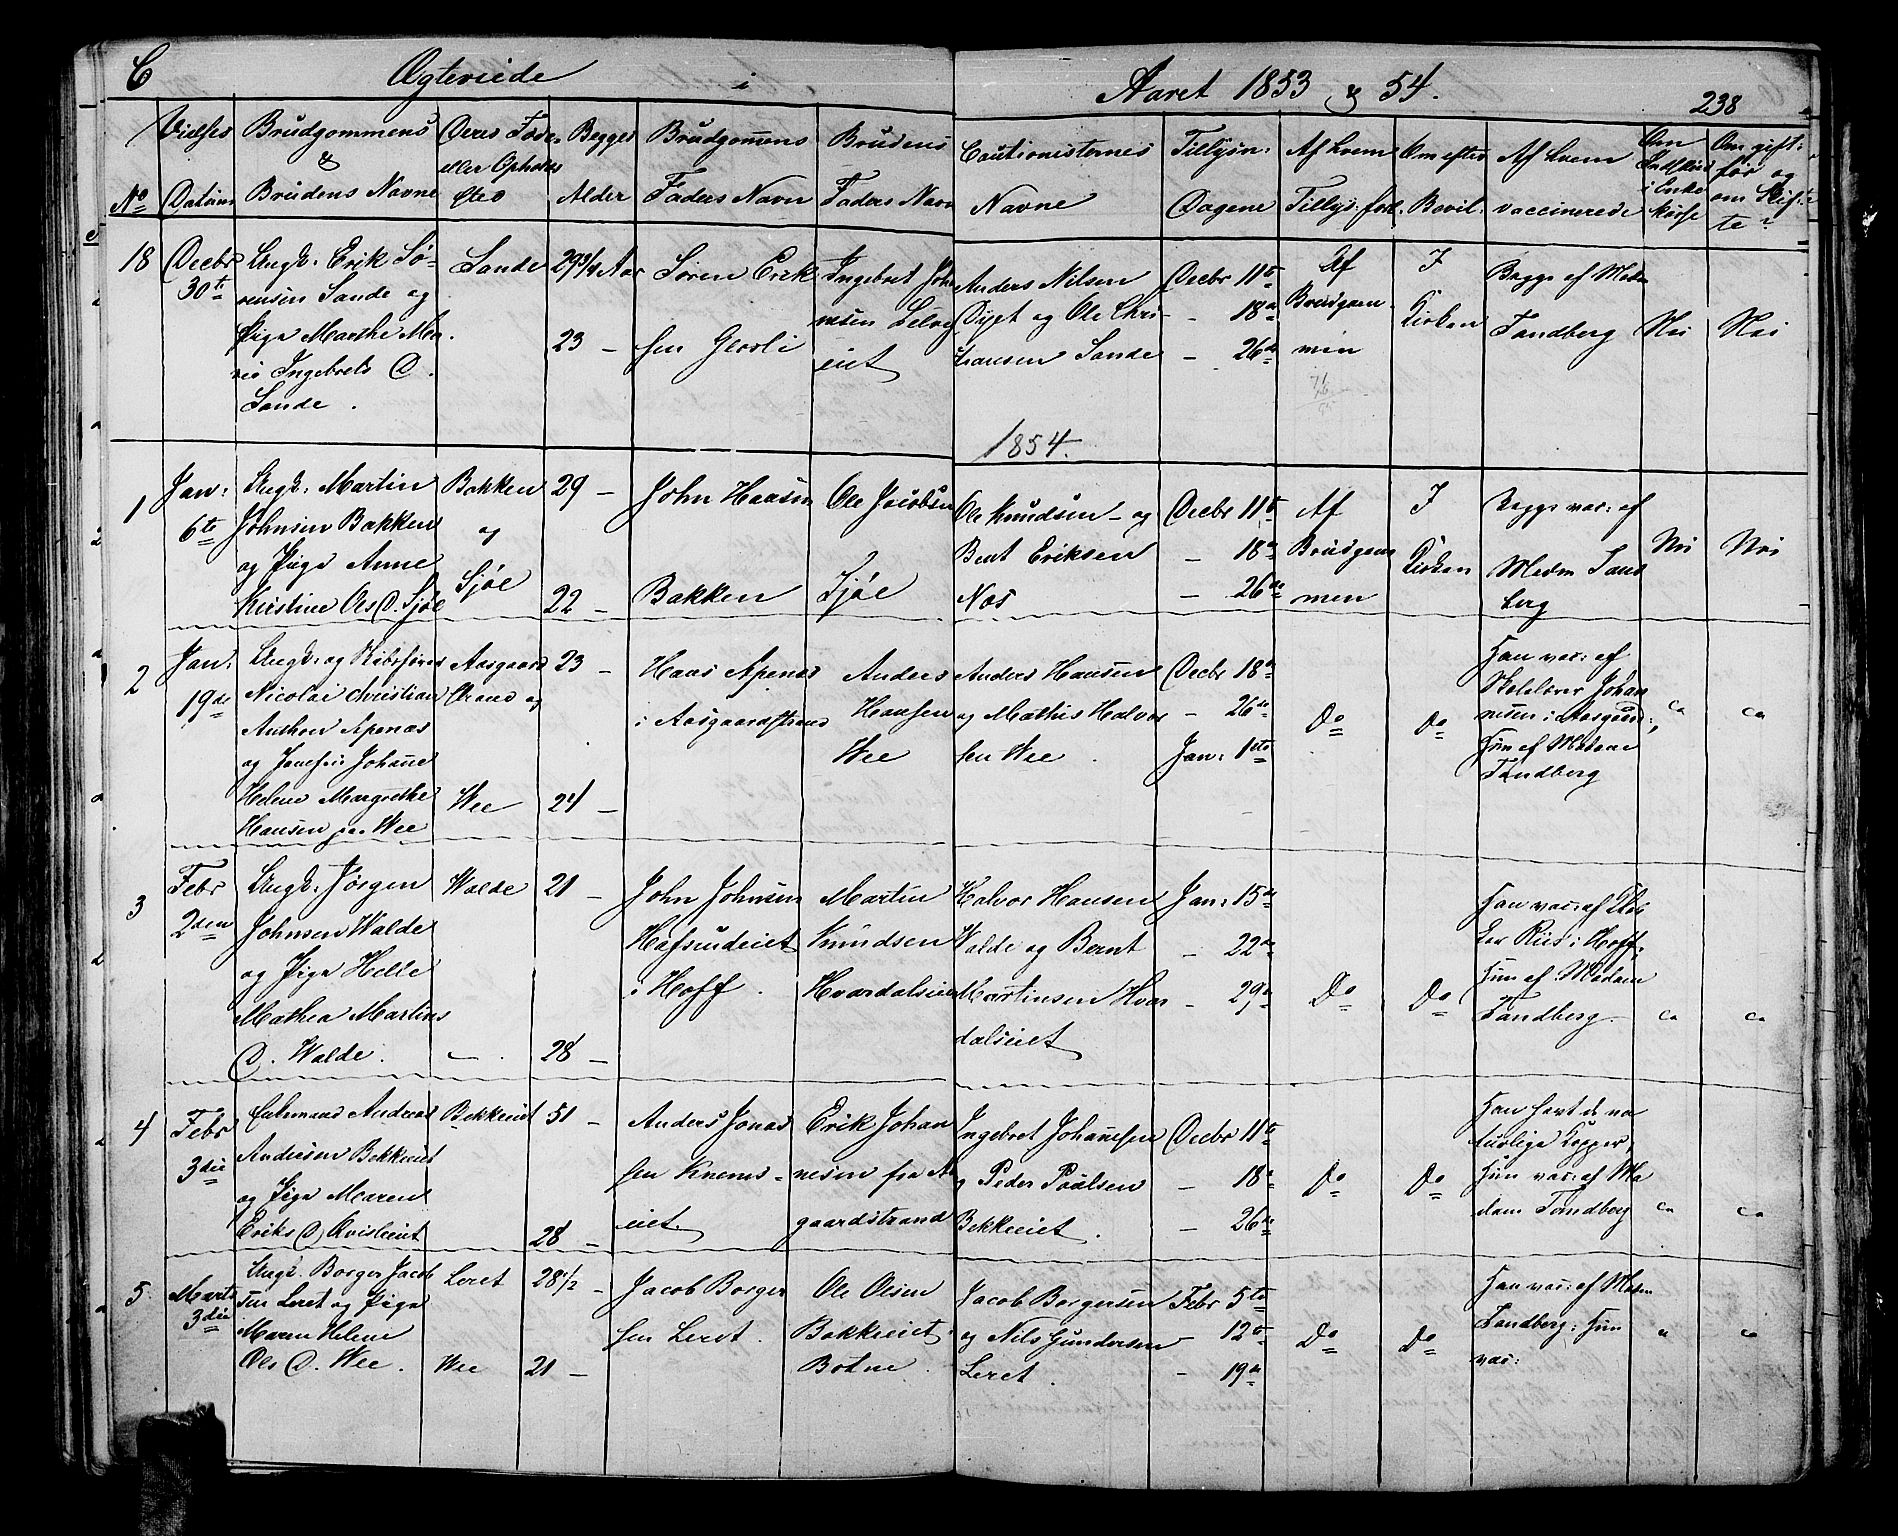 C Ægteviede i Aaret 1853 & 54.
238
No
Vielses Datum
Brudgommens & Brudens Navne
Deres Føde- eller Opholds Sted
Begges Alder
Brudgommens Faders Navn
Brudens Faders Navn
Cautionisternes Navne
Tillysn: Dagene
Af hvem Tillys: ford.
Om efter Bevil:
Af hvem vaccinerede
Om gift: før og om Skifte?
18
Decbr 30te
Ungk: Erik Sørensen Sande og
Pige Marthe Marie Ingebrets D.
Sande.
Sande
29 3/4 Aar
23 –
Søren Eriksen
Ingebret
eiet
Anders Nilsen
Dypt og Ole Christiansen Sande
Decbr 11te
– 18de
– 26de
Af Brudgommen
I Kirken
Begge af Madm Tandberg
Nei
Nei
1854.
1
Jan: 6te
Ungk: Martin
Johnsen Bakken
og Pige Anne
Kristine Oles D. Sjøe
Bakken
og
Sjøe
29 –
22 –
John Hansen
Bakken
Ole Jacobsen
Sjøe
Ole Knudsen – og
Bent Eriksen
Nes
Decbr 11te
– 18de
– 26de
Af Brudgommen
I Kirken
Begge vac: af
Madm Tandberg
Nei
Nei
2
Jan: 19de
Ungk: og
Nicolai Christian
Anthon Apenas
og Jomfru Johanne
Helene Margrethe
Hansen paa Wee
Aasgaardstrand og
Wee
23 –
24 –
Hans Apenas
i Aasgaardstrand
Anders
Hansen
Wee
Anders Hansen
og Mathis Halvorsen Wee.
Decbr 18de
– 26de
Jan: 1ste
Do
Do
Han vac: af
Skolelærer Johannesen i Aasgaard:,
Hun af Madame
Tandberg
ca
ca
3
Febr 2den
Ungk: Jørgen
Johnsen Walde
og Pige Helle
Mathea Martins
D. Walde.
Walde
– .
21 –
28 –
John Johnsen
Hafsundeiet
i Hoff.
Martin
Knudsen
Hvardalseiet
Halvor Hansen
Walde og Bernt
Martinsen Hvardalseiet
Jan: 15de
– 22de
– 29de
Do
Do
Han vac: af
Riis i Hoff;
Hun af Madam
Tandberg.
ca
ca
4
Febr 3die
Enkemand Andreas
Andersen Bekkeeiet
og Pige Maren
Eriks D.
Bekkeeiet
51 –
28 –
Anders Jonassen
eiet.
Erik Johannesen fra Aasgaardstrand
Ingebret Johannesen
og Peder Poulsen
Bekkeeiet.
Decbr 11te
– 18de
– 26de
Do
Do
Han havt de naturlige Kopper,
Hun vac: af Madam Tandberg
ca
ca
5.
Marts 3die
Ungk. Borger Jacobsen Leret og Pige
Maren Helene
Oles D. Wee.
Leret
Wee
28 1/2 –
21 –
Jacob Borgersen Leret.
Ole Olsen
Bakkeeiet
Botne.
Jacob Borgersen
og Nils Gundersen
Leret.
Febr 5te
– 12te
– 19de
Do
Do
Han vac: af Madam
Tandberg: Hun
vac:
ca